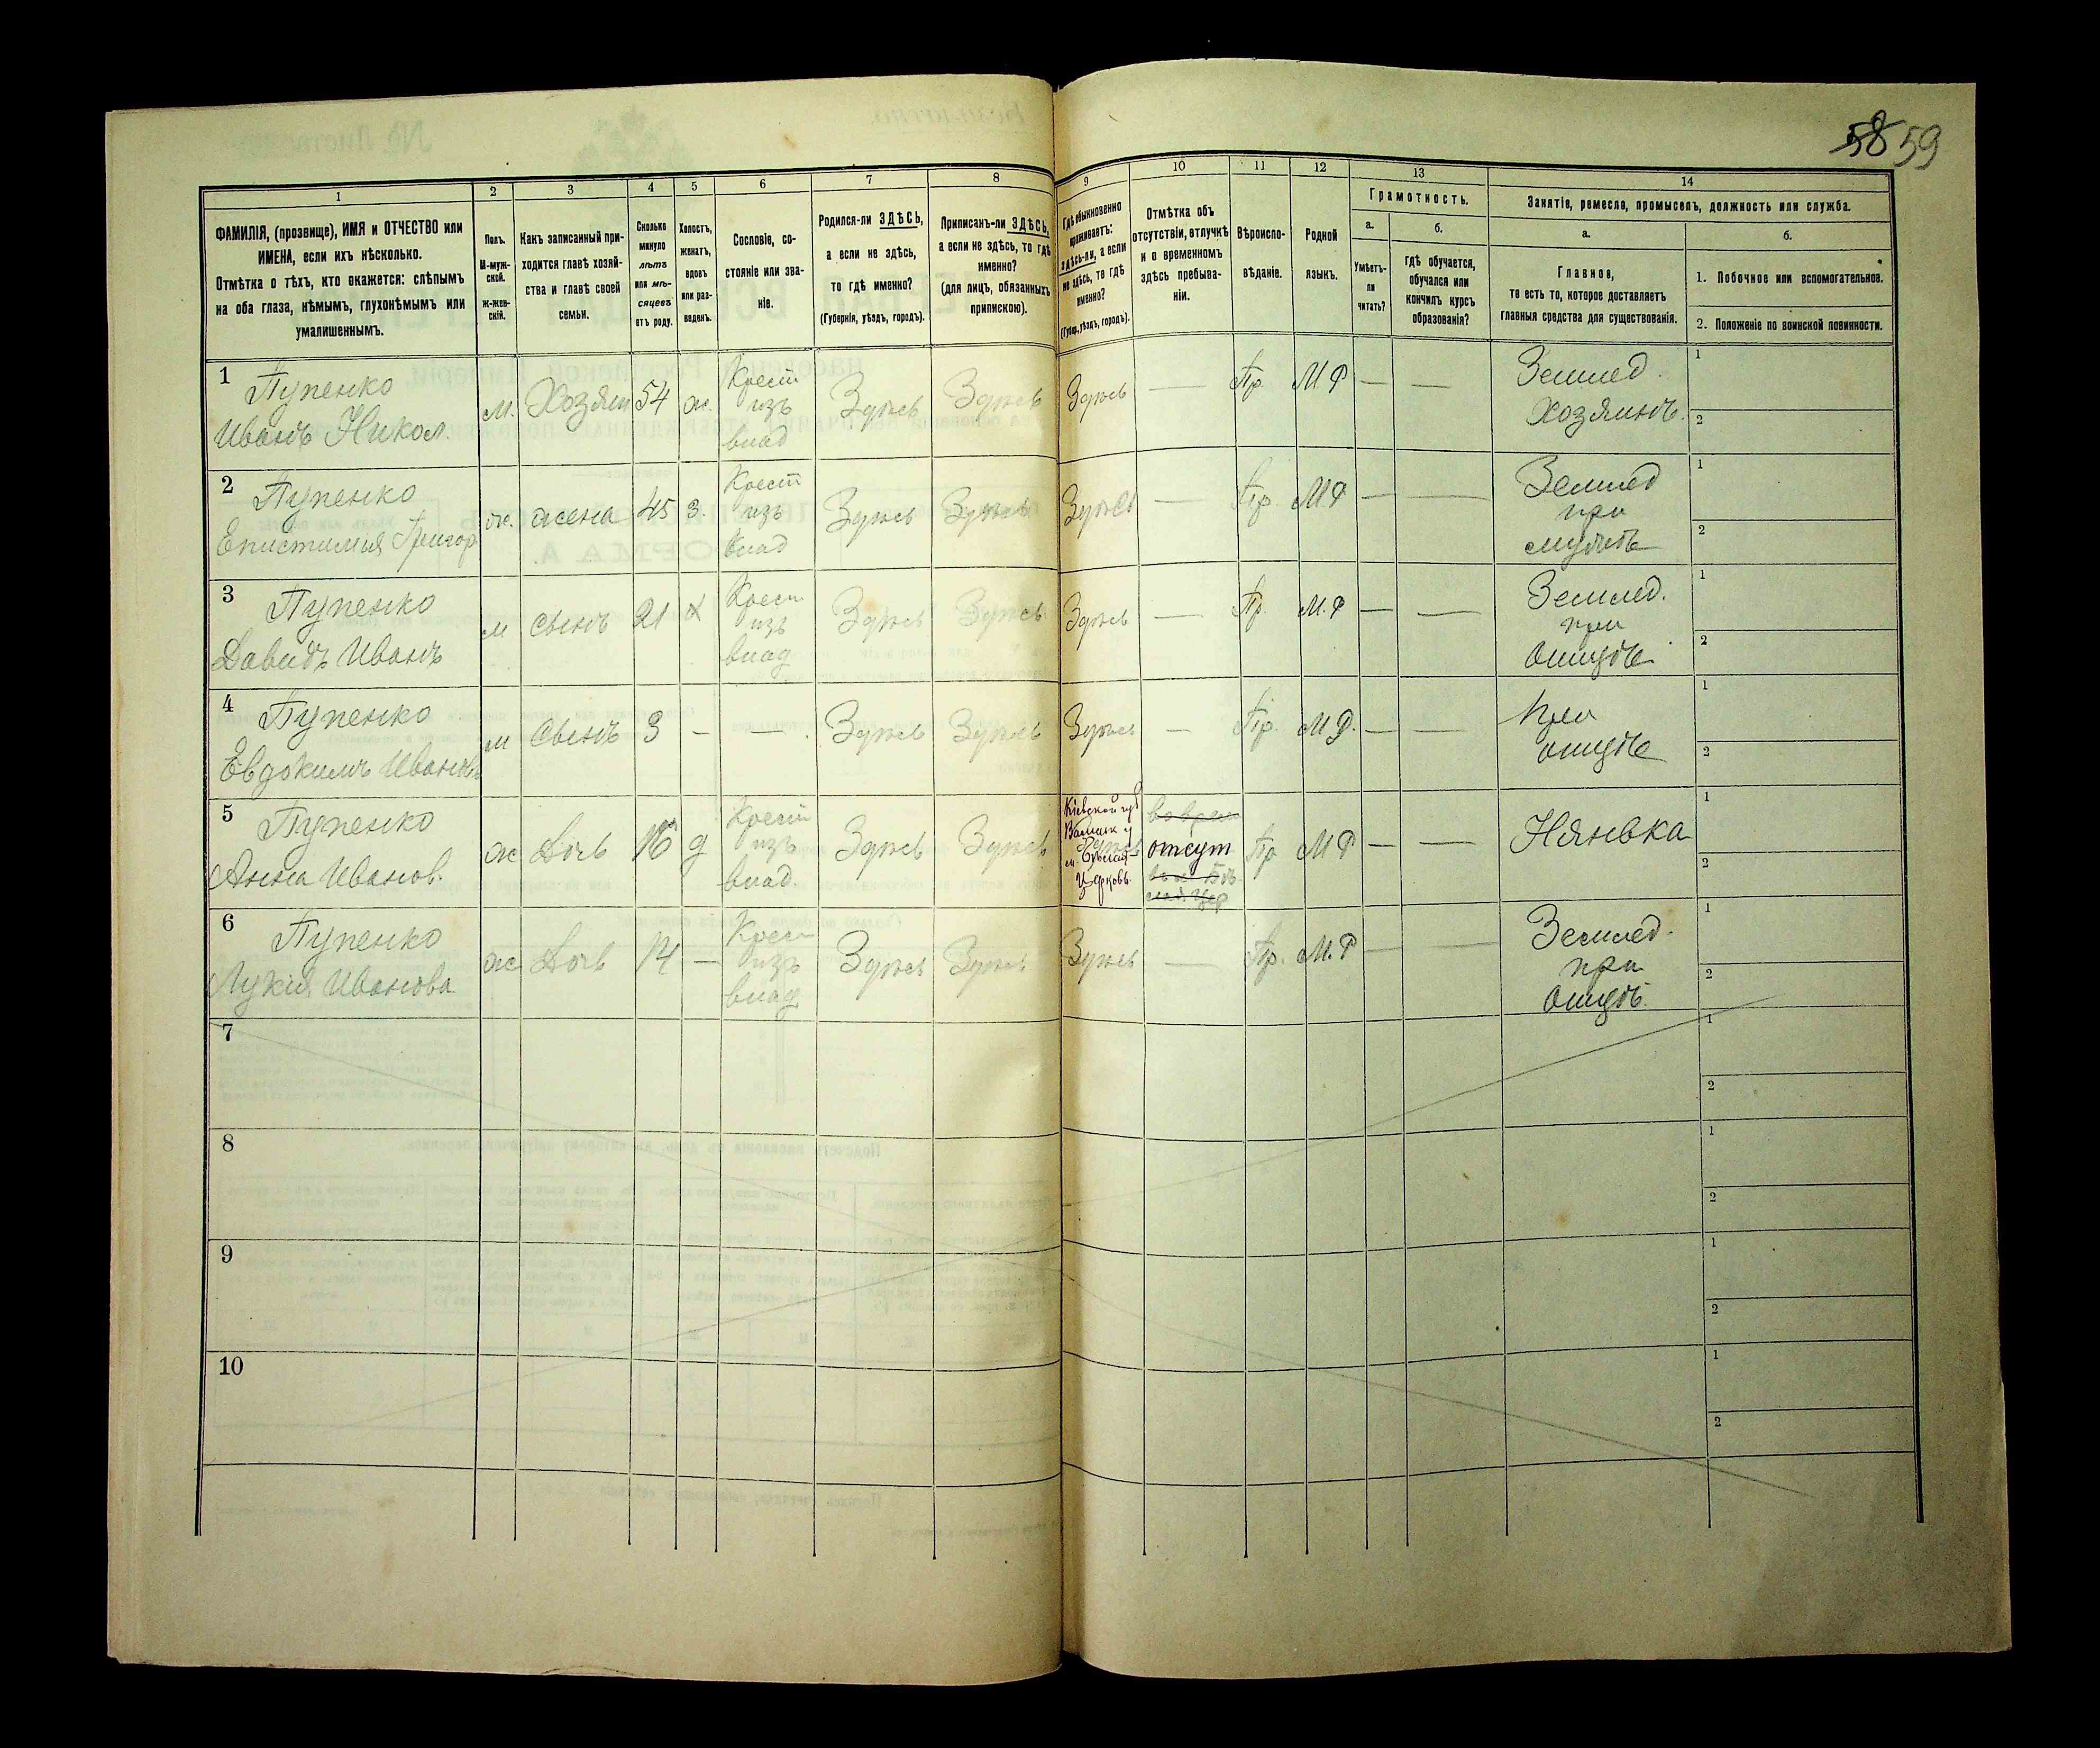 58 59
1
2
3
4
5
6
7
8
9
10
11
12
13
14
ФАМИЛІЯ, (прозвище), ИМЯ и ОТЧЕСТВО или
ИМЕНА, если ихъ нѣсколько.
Отмѣтка о тѣхъ, кто окажется: слѣпымъ
на оба глаза, нѣмымъ, глухонѣмымъ или
умалишеннымъ.
Полъ.
М-муж-
ской.
ж-жен-
скій.
Какъ записанный при-
ходится главѣ хозяй-
ства и главѣ своей
семьи.
Сколько
минуло
лѣтъ
или мѣ-
сяцевъ
отъ роду.
Холостъ,
женатъ,
вдовъ
или раз-
веденъ.
Сословіе, со-
стояніе или зва-
ніе.
Родился-ли ЗДѢСЬ,
а если не здѣсь,
то гдѣ именно?
(Губернія, уѣздъ, городъ).
Приписанъ-ли ЗДѢСЬ,
а если не здѣсь, то гдѣ
именно?
(для лицъ, обязанныхъ
припискою).
Гдѣ обыкновенно
проживаетъ:
здѣсь-ли, а если
не здѣсь, то гдѣ
именно?
(Губер., уѣздъ, городъ).
Отмѣтка объ
отсутствіи, отлучкѣ
и о временномъ
здѣсь пребыва-
ніи.
Вѣроиспо-
вѣданіе.
Родной
языкъ.
Грамотность.
а.
Умѣетъ-
ли
читать?
б.
гдѣ обучается,
обучался или
кончилъ курсъ
образованія?
Занятіе, ремесло, промыселъ, должность или служба.
а.
Главное,
то есть то, которое доставляетъ
главныя средства для существованія.
б.
1. Побочное или вспомогательное.
2. Положеніе по воинской повинности.
1
Пупенко
Иванъ Никол.
м.
Хозяин
54
ж.
Крест
изъ
влад
Здѣсь
Здѣсь
Здѣсь
—
Пр.
М Р
—
—
Землед.
Хозяинъ.
1
2
2
Пупенко
Епистимия Григор
ж.
жена
45
з.
Крест
изъ
влад
Здѣсь
Здѣсь
Здѣсь
—
Пр.
М.Р
—
—
Землед
при
мужѣ
1
2
3
Пупенко
Давидъ Иванъ
м
сынъ
21
х
Крест
изъ
влад
Здѣсь
Здѣсь
Здѣсь
—
Пр.
М.Р
—
—
Землед.
при
отцѣ
1
2
4
Пупенко
Евдокимъ Ивановъ
м
сынъ
3
—
—
Здѣсь
Здѣсь
Здѣсь
—
Пр.
М Р.
—
—
При
отцѣ
1
2
5
Пупенко
Анна Иванов.
ж
Дочь
16
д
Крест
изъ
влад.
Здѣсь
Здѣсь
Кіевской губ
у
м. Бѣлая-
Церковь.
отсут
Пр
М Р
—
—
Нянька
1
2
6
Пупенко
Лукия Иванова
ж
Дочь
14
—
Крест
изъ
влад
Здѣсь
Здѣсь
Здѣсь
—
Пр.
М.Р
—
—
Землед.
при
отцѣ.
1
2
7
1
2
8
1
2
9
1
2
10
1
2